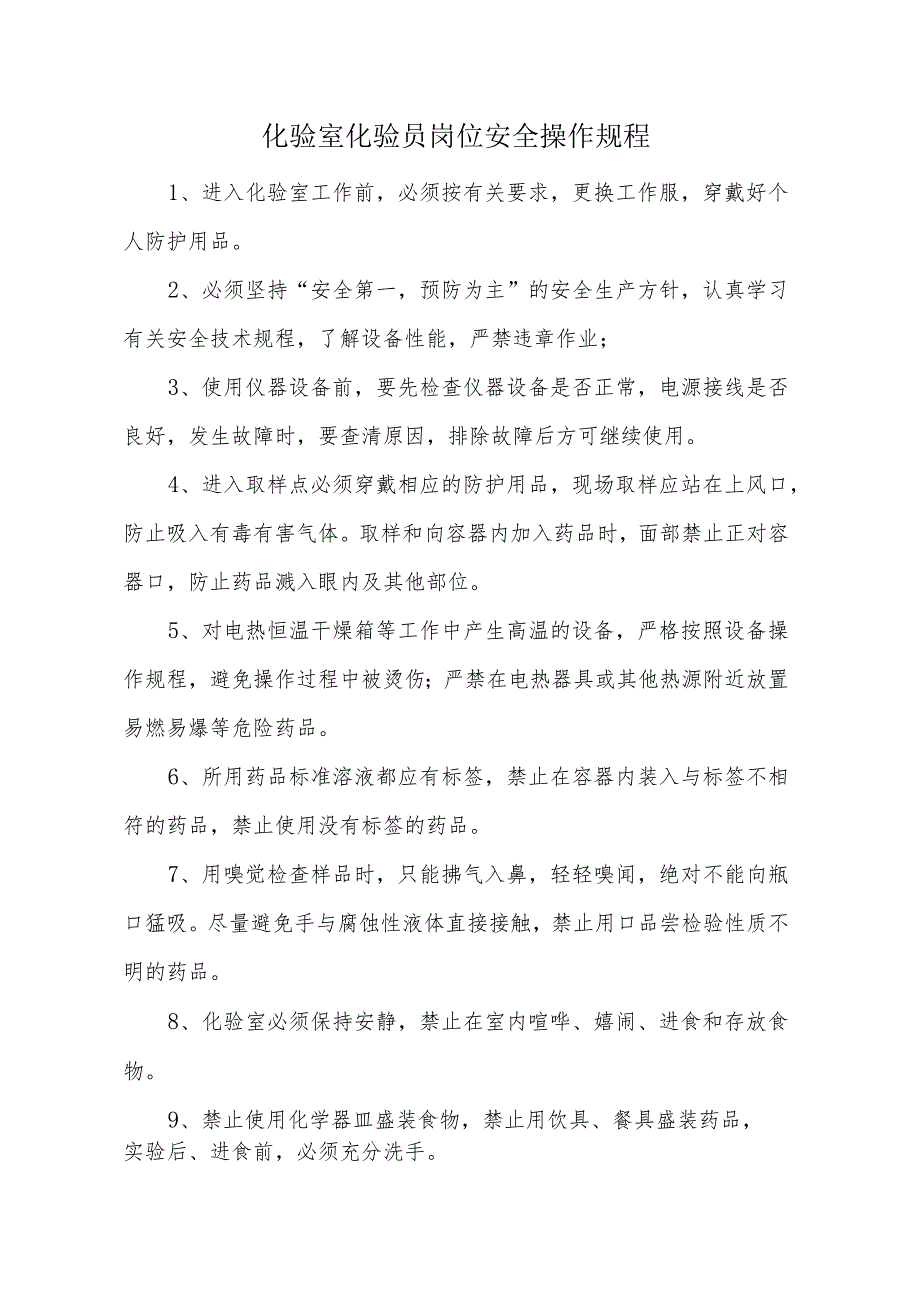 化验室化验员岗位安全操作规程
1、进入化验室工作前，必须按有关要求，更换工作服，穿戴好个
人防护用品。
2、必须坚持“安全第一，预防为主”的安全生产方针，认真学习
有关安全技术规程，了解设备性能，严禁违章作业；
3、使用仪器设备前，要先检查仪器设备是否正常，电源接线是否
良好，发生故障时，要查清原因，排除故障后方可继续使用。
4、进入取样点必须穿戴相应的防护用品，现场取样应站在上风口，
防止吸入有毒有害气体。取样和向容器内加入药品时，面部禁止正对容
器口，防止药品溅入眼内及其他部位。
5、对电热恒温干燥箱等工作中产生高温的设备，严格按照设备操
作规程，避免操作过程中被烫伤；严禁在电热器具或其他热源附近放置
易燃易爆等危险药品。
6、所用药品标准溶液都应有标签，禁止在容器内装入与标签不相
符的药品，禁止使用没有标签的药品。
7、用嗅觉检查样品时，只能拂气入鼻，轻轻嗅闻，绝对不能向瓶
口猛吸。尽量避免手与腐蚀性液体直接接触，禁止用口品尝检验性质不
明的药品。
8、化验室必须保持安静，禁止在室内喧哗、嬉闹、进食和存放食
物。
9、禁止使用化学器皿盛装食物，禁止用饮具、餐具盛装药品，
实验后、进食前，必须充分洗手。